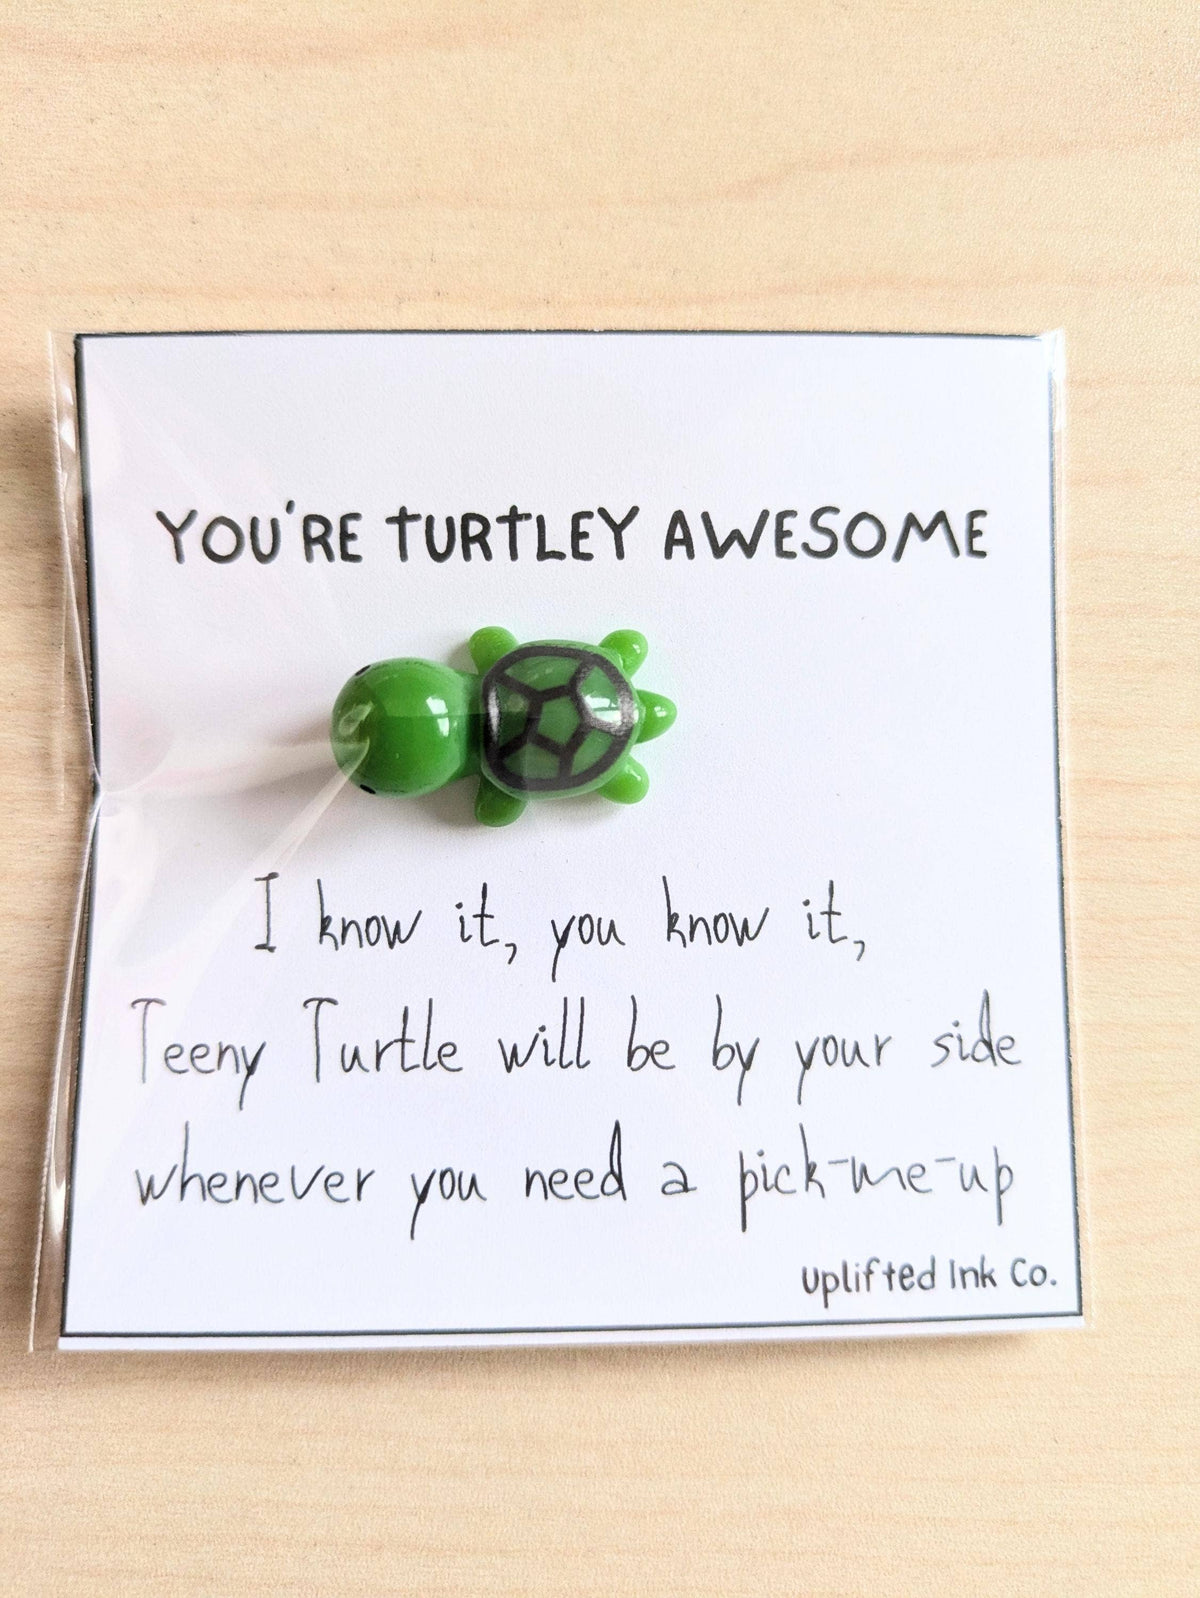 YOU'RE TURTLEY AWESOME
I know it, you know it,
Teeny Turtle will be by your side
whenever you need a pick-me-up
uplifted Ink Co.